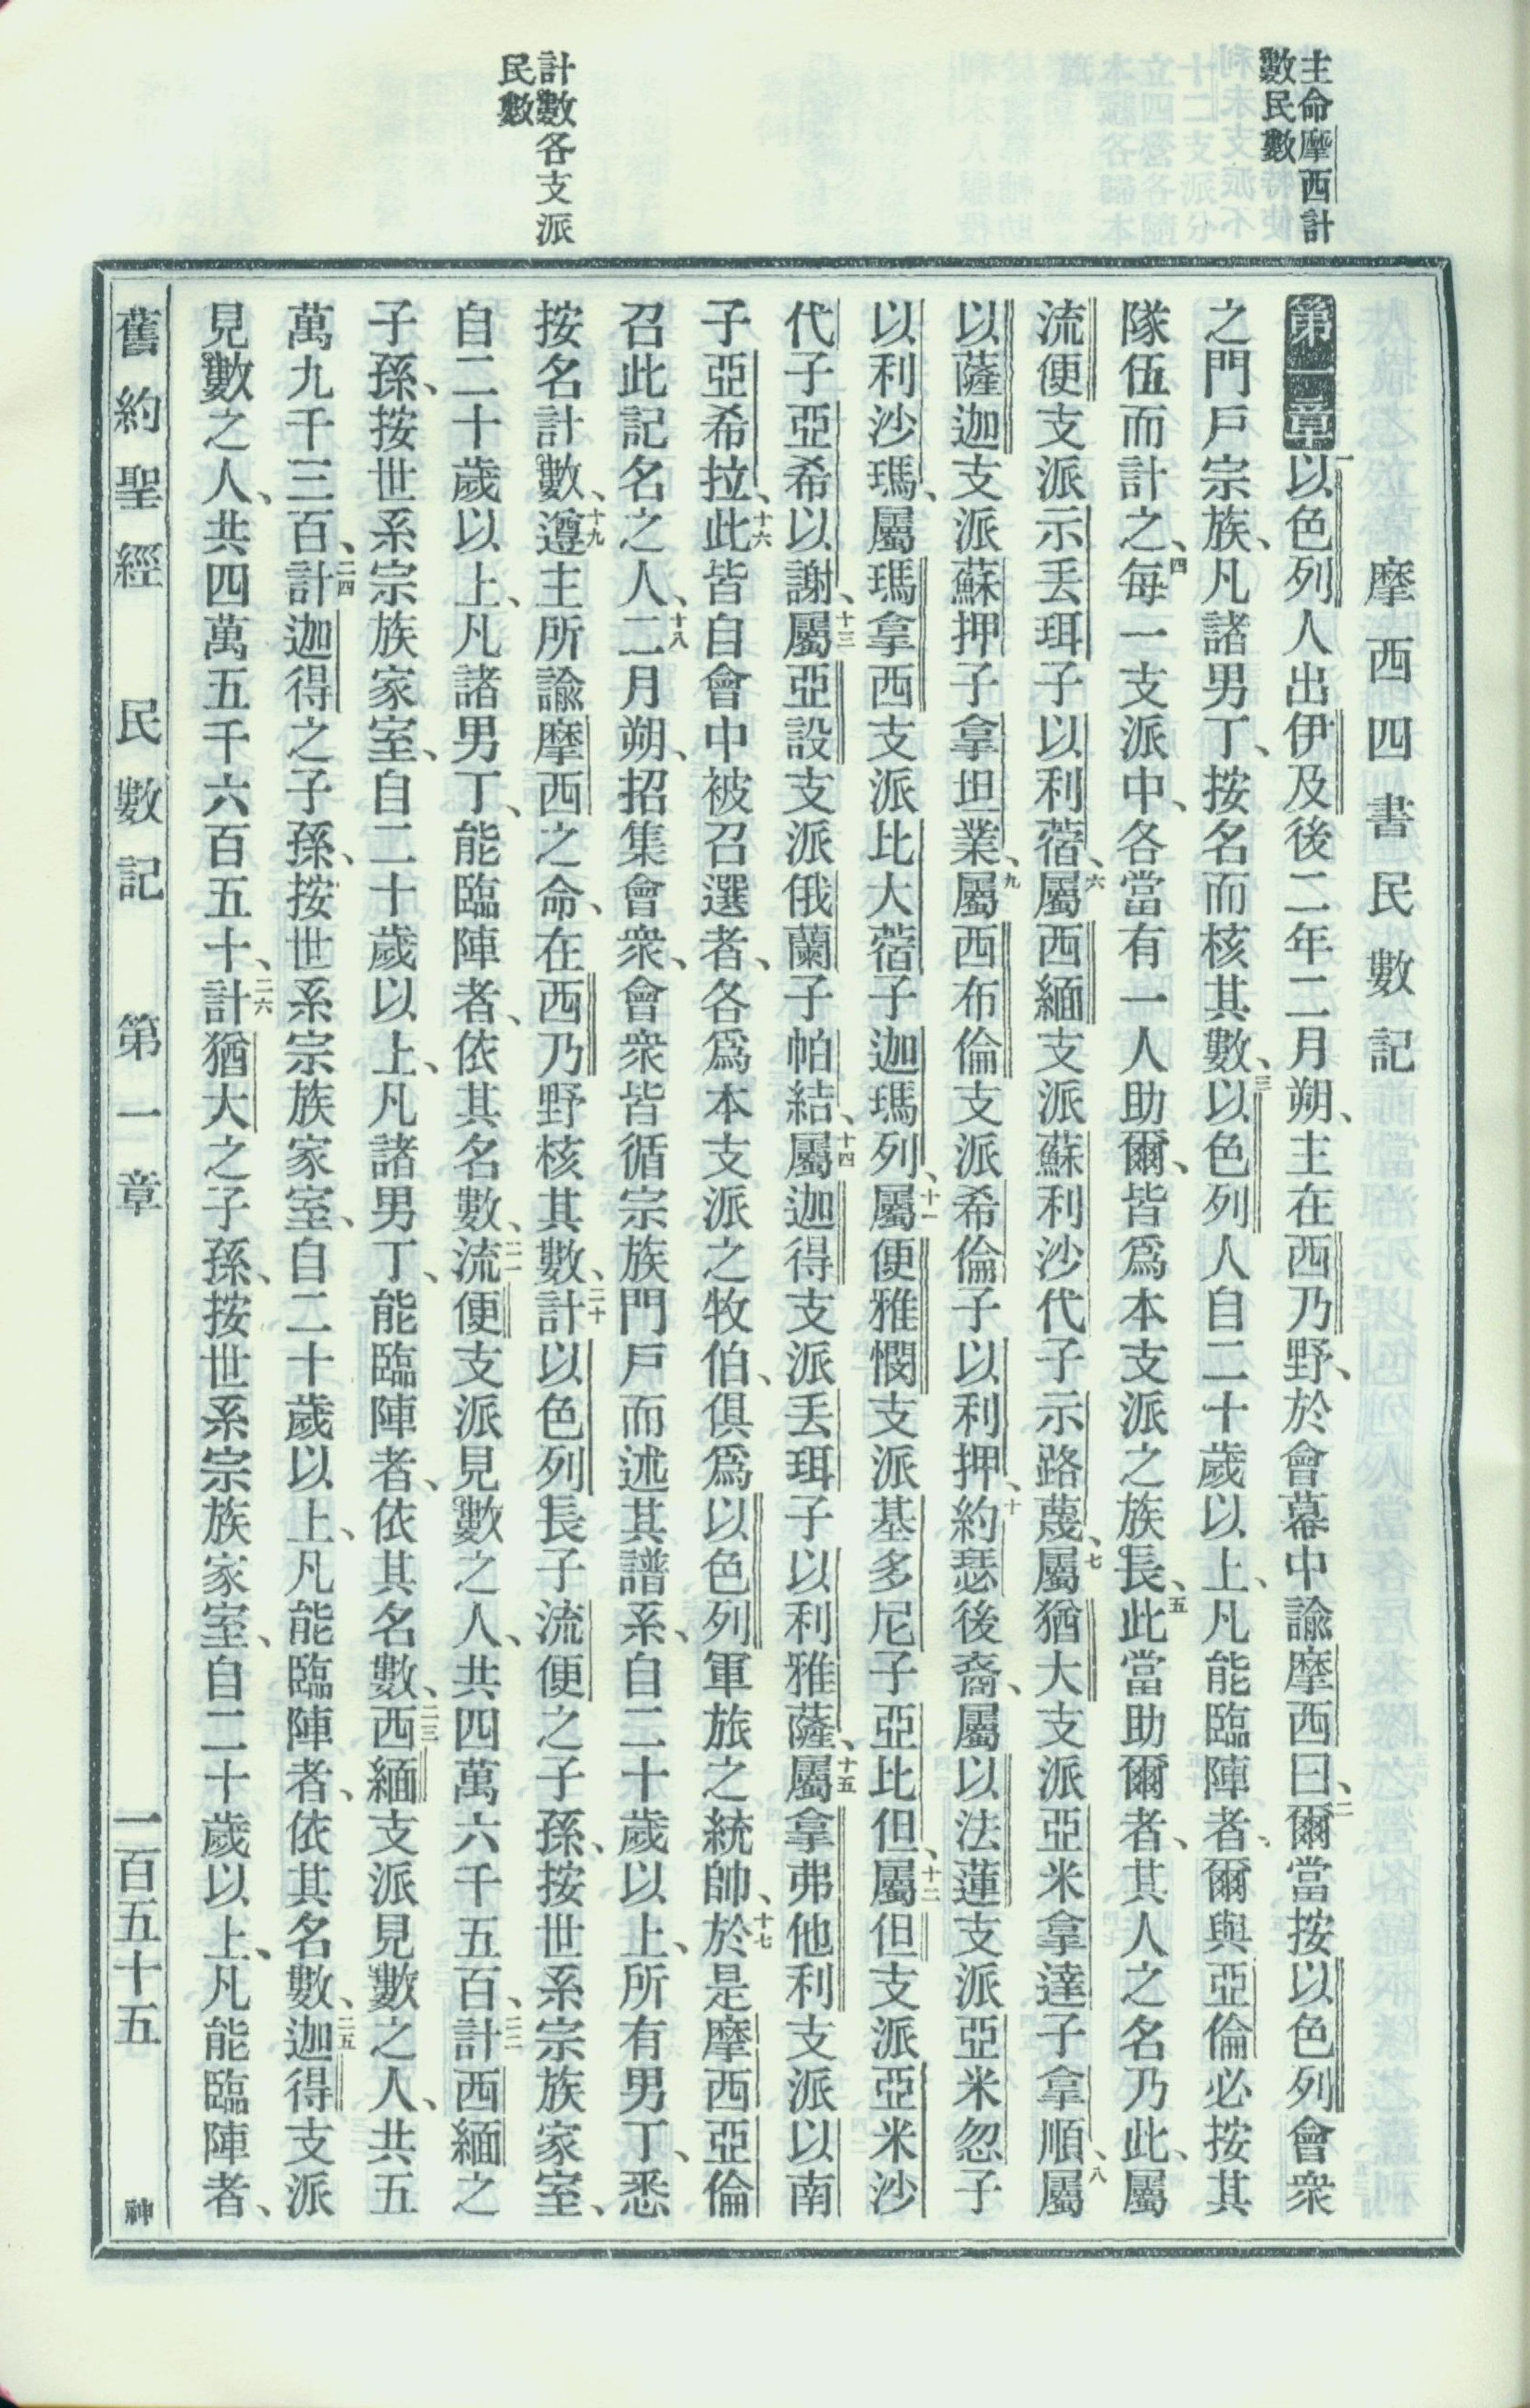 主命摩西計
數民數
計數各支派
民數
摩西四書民數記
第一章一以色列人出伊及後二年二月朔、主在西乃野、於會幕中諭摩西曰、二爾當按以色列會衆
之門戶宗族、凡諸男丁、按名而核其數、三以色列人自二十歲以上、凡能臨陣者、爾與亞倫必按其
隊伍而計之、四每一支派中、各當有一人助爾、皆爲本支派之族長、五此當助爾者、其人之名乃此、屬
流便支派示丟珥子以利蓿、六屬西緬支派蘇利沙代子示路蔑、七屬猶大支派亞米拿達子拿順、八屬
以薩迦支派蘇押子拿坦業、九屬西布倫支派希倫子以利押、十約瑟後裔、屬以法蓮支派亞米忽子
以利沙瑪、屬瑪拿西支派比大蓿子迦瑪列、十一屬便雅憫支派基多尼子亞比但、十二屬但支派亞米沙
代子亞希以謝、十三屬亞設支派俄蘭子帕結、十四屬迦得支派丟珥子以利雅薩、十五屬拿弗他利支派以南
子亞希拉、十六此皆自會中被召選者、各爲本支派之牧伯、俱爲以色列軍旅之統帥、十七於是摩西亞倫
召此記名之人、十八二月朔、招集會衆、會衆皆循宗族門戶而述其譜系、自二十歲以上、所有男丁、悉
按名計數、十九遵主所諭摩西之命、在西乃野核其數、二十計以色列長子流便之子孫、按世系宗族家室、
自二十歲以上、凡諸男丁、能臨陣者、依其名數、二一流便支派見數之人、共四萬六千五百、二二計西緬之
子孫、按世系宗族家室、自二十歲以上、凡諸男丁、能臨陣者、依其名數、二三西緬支派見數之人、共五
萬九千三百、二四計迦得之子孫、按世系宗族家室、自二十歲以上、凡能臨陣者、依其名數、二五迦得支派
見數之人、共四萬五千六百五十、二六計猶大之子孫、按世系宗族家室、自二十歲以上、凡能臨陣者、
舊約聖經　民數記　第一章　一百五十五　神